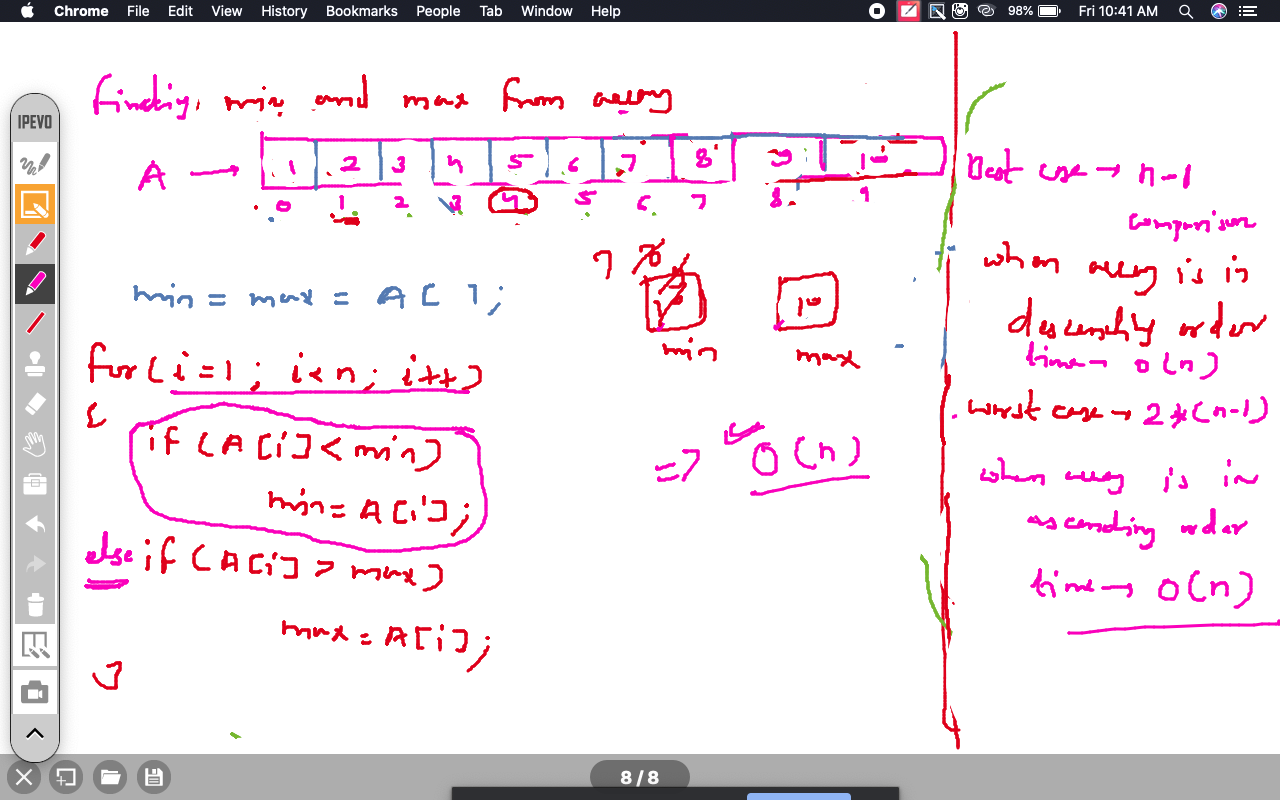 Chrome File Edit View History Bookmarks People Tab Window Help 98% Fri 10:41 AM
IPEVO
finding min and max from array
A → 1 2 3 4 5 6 7 8 9 10
0 1 2 3 4 5 6 7 8 9
min = max = A[ ];
for (i=1; i<n; i++)
{
if (A[i] < min)
min = A[i];
else if (A[i] > max)
max = A[i];
}
7 8
10
min max
=> O(n)
Best case → n-1
comparison
when array is in
descending order
time → O(n)
worst case → 2*(n-1)
when array is in
ascending order
time → O(n)
8 / 8